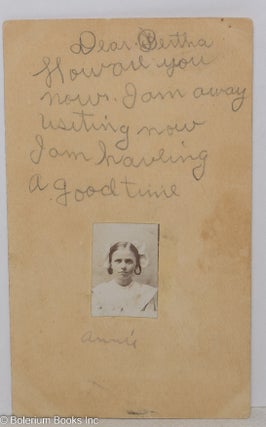 Dear Bertha
How are you
now. I am away
visiting now
I am haveing
a good time
Annie
© Bolerium Books Inc